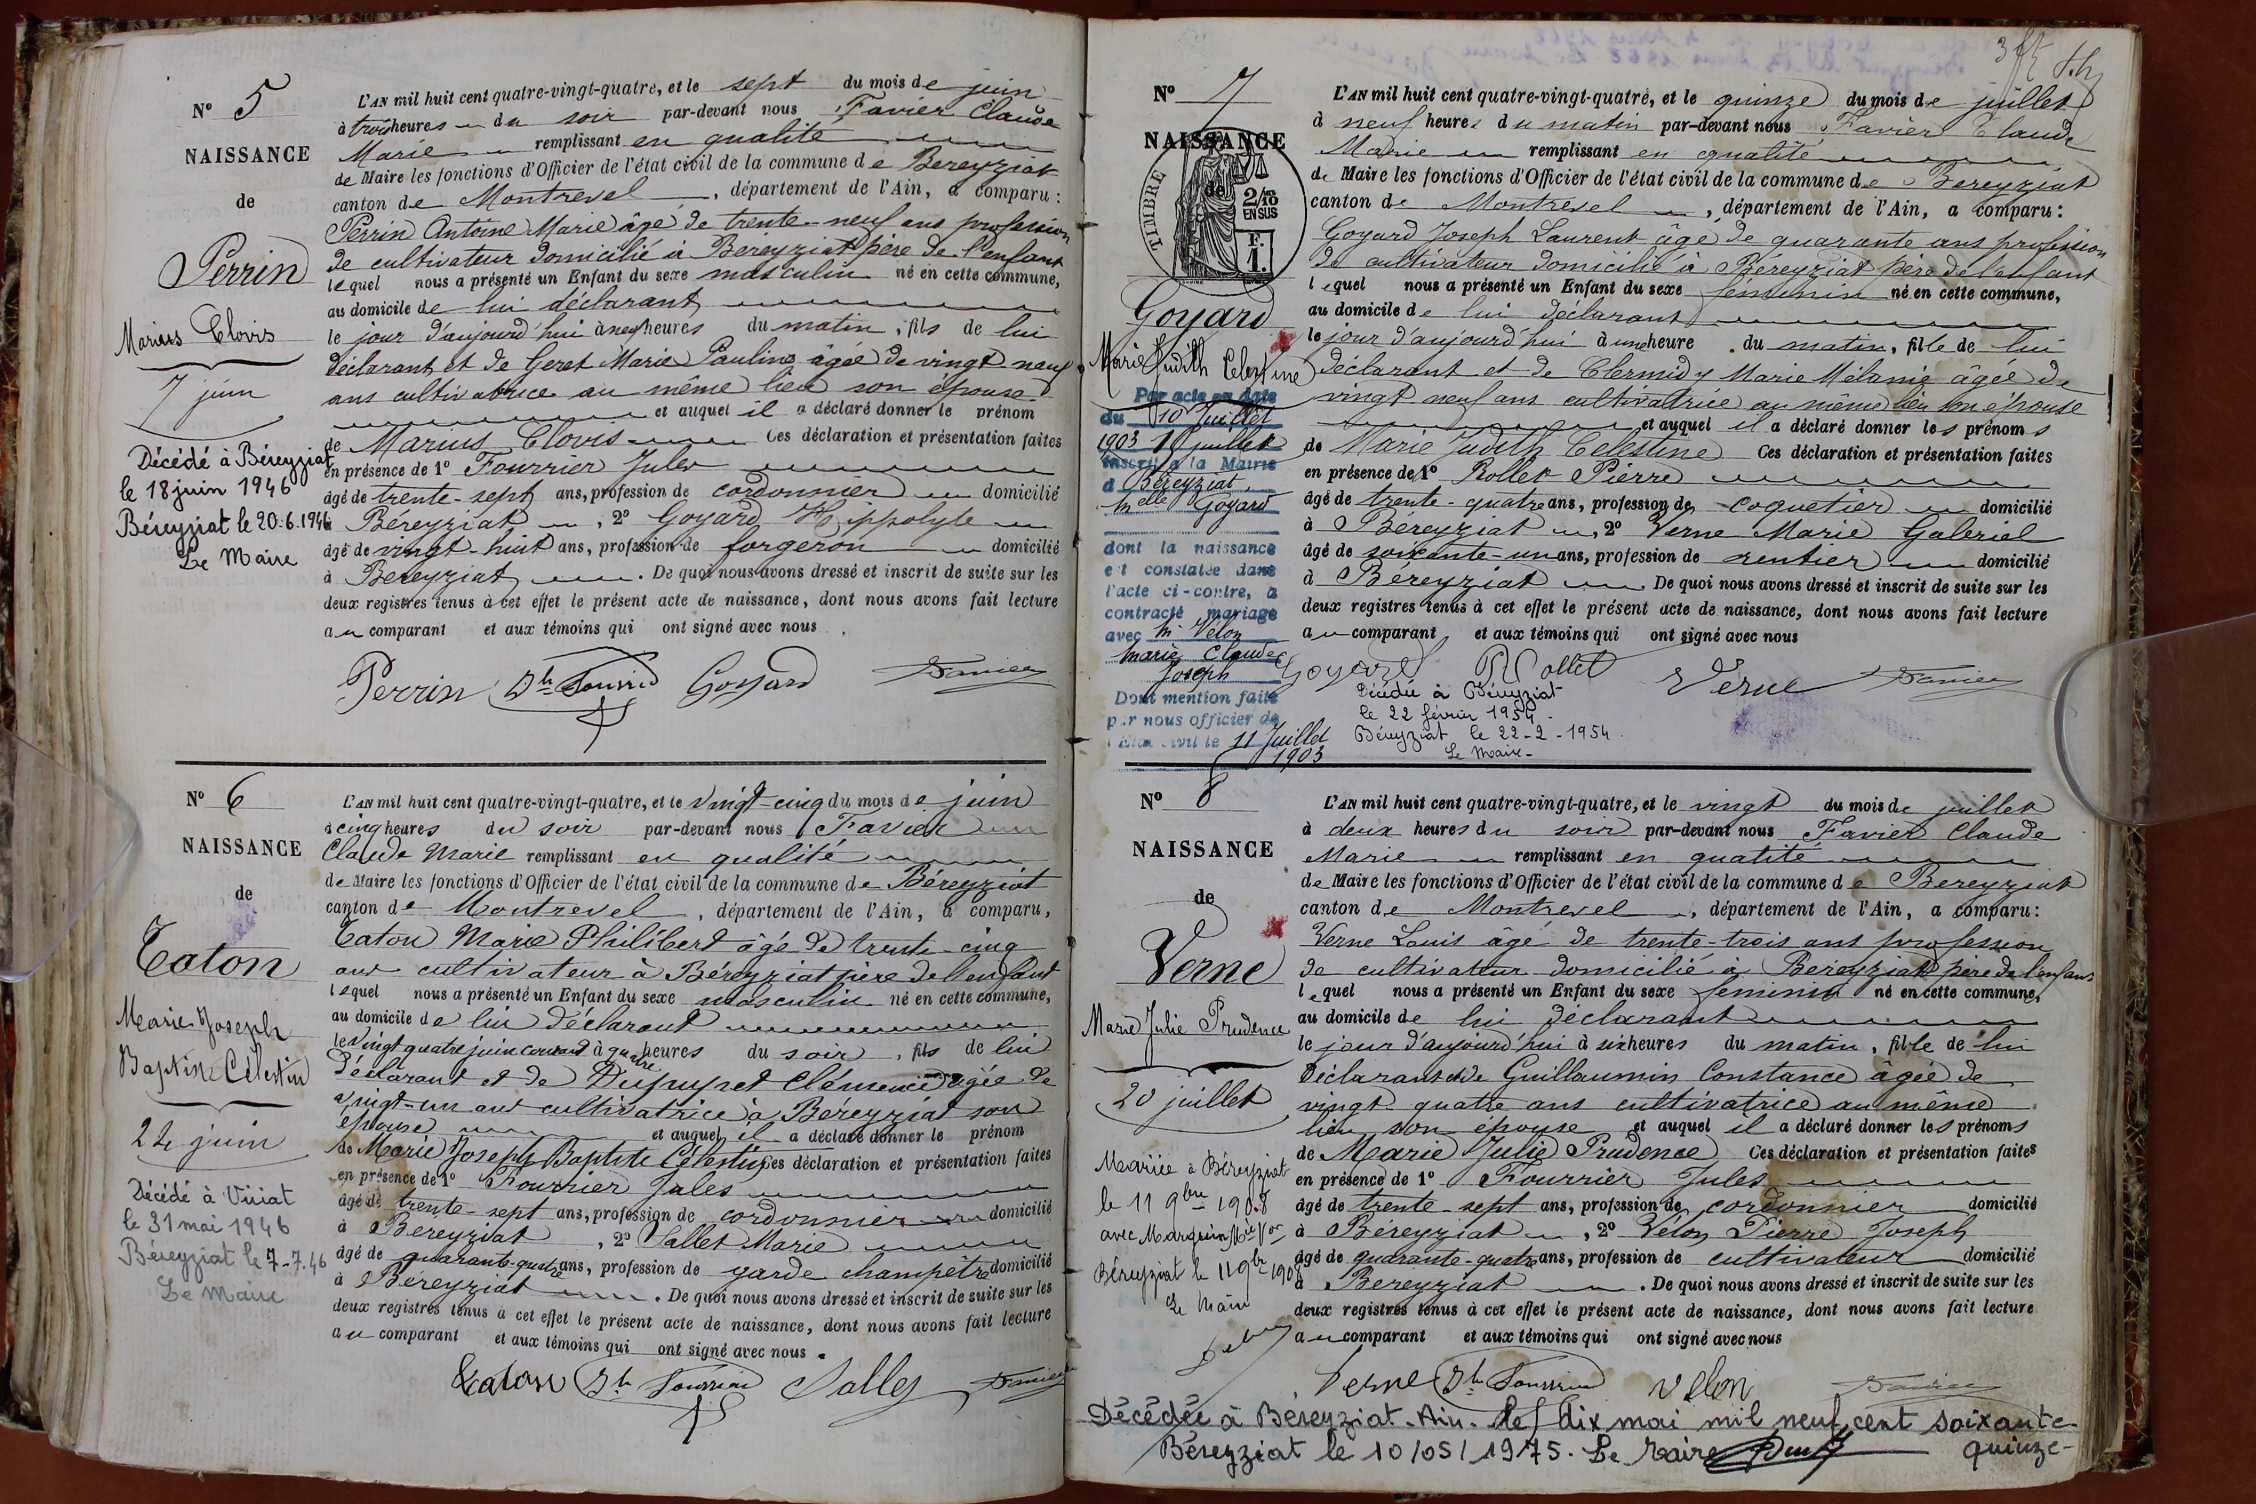 N° 5
NAISSANCE
de
Perrin
Marius Clovis
7 juin
Décédé à Béreyziat
le 18 juin 1946
Béreyziat le 20.6.1946
Le Maire
L'AN mil huit cent quatre-vingt-quatre, et le sept du mois de juin
à trois heures du soir par-devant nous Favier Claude
Marie remplissant en qualité
de Maire les fonctions d'Officier de l'état civil de la commune de Bereyziat
canton de Montrevel, département de l'Ain, a comparu :
Perrin Antoine Marie âgé de trente-neuf ans profession
de cultivateur domicilié à Bereyziat père de l'enfant
lequel nous a présenté un Enfant du sexe masculin né en cette commune,
au domicile de lui déclarant
le jour d'aujourd'hui à neuf heures du matin, fils de lui
déclarant et de Geret Marie Pauline âgée de vingt-neuf
ans cultivatrice au même lieu son épouse
et auquel il a déclaré donner le prénom
de Marius Clovis Ces déclaration et présentation faites
en présence de 1° Fourrier Jules
âgé de trente-sept ans, profession de cordonnier domicilié
à Béreyziat, 2° Goyard Hippolyte
âgé de vingt-huit ans, profession de forgeron domicilié
à Bereyziat. De quoi nous avons dressé et inscrit de suite sur les
deux registres tenus à cet effet le présent acte de naissance, dont nous avons fait lecture
au comparant et aux témoins qui ont signé avec nous.
Perrin Goyard Favier
N° 6
NAISSANCE
de
Caton
Marie Joseph
Baptiste Célestin
24 juin
Décédé à Viriat
le 31 mai 1946
Béreyziat le 7-7.46
Le Maire
L'AN mil huit cent quatre-vingt-quatre, et le vingt-cinq du mois de juin
à cinq heures du soir par-devant nous Favier
Claude Marie remplissant en qualité
de Maire les fonctions d'Officier de l'état civil de la commune de Béreyziat
canton de Montrevel, département de l'Ain, a comparu,
Caton Marie Philibert âgé de trente-cinq
ans cultivateur à Béreyziat père de l'enfant
lequel nous a présenté un Enfant du sexe masculin né en cette commune,
au domicile de lui déclarant
le vingt quatre juin courant à quatre heures du soir, fils de lui
déclarant et de Dupupet Clémence âgée de
vingt-un ans cultivatrice à Béreyziat son
épouse et auquel il a déclaré donner le prénom
de Marie Joseph Baptiste Célestin Ces déclaration et présentation faites
en présence de 1° Fourrier Jules
âgé de trente-sept ans, profession de cordonnier domicilié
à Bereyziat, 2° Sallet Marie
âgé de quarante-quatre ans, profession de garde champêtre domicilié
à Béreyziat. De quoi nous avons dressé et inscrit de suite sur les
deux registres tenus à cet effet le présent acte de naissance, dont nous avons fait lecture
au comparant et aux témoins qui ont signé avec nous.
Caton Favier
N° 7
NAISSANCE
de
TIMBRE
2/10
EN SUS
F.
1.
Goyard
Marie Judith Celestine
Par acte en date
du 10 Juillet
1903 10 juillet
inscrit à la Mairie
d Béreyziat,
Melle Goyard
dont la naissance
est constatée dans
l'acte ci-contre, a
contracté mariage
avec Mr Vélon
Marie Claude
Joseph
Dont mention faite
par nous officier de
l'Etat civil le 11 Juillet
1903
L'AN mil huit cent quatre-vingt-quatre, et le quinze du mois de juillet
à neuf heures du matin par-devant nous Favier Claude
Marie remplissant en qualité
de Maire les fonctions d'Officier de l'état civil de la commune de Bereyziat
canton de Montrevel, département de l'Ain, a comparu :
Goyard Joseph Laurent âgé de quarante ans profession
de cultivateur domicilié à Béreyziat père de l'enfant
lequel nous a présenté un Enfant du sexe féminin né en cette commune,
au domicile de lui déclarant
le jour d'aujourd'hui à une heure du matin, fille de lui
déclarant et de Clermidy Marie Mélanie âgée de
vingt neuf ans cultivatrice au même lieu son épouse
et auquel il a déclaré donner les prénoms
de Marie Judith Celestine Ces déclaration et présentation faites
en présence de 1° Rollet Pierre
âgé de trente-quatre ans, profession de coquetier domicilié
à Béreyziat, 2° Verne Marie Gabriel
âgé de soixante-un ans, profession de rentier domicilié
à Béreyziat. De quoi nous avons dressé et inscrit de suite sur les
deux registres tenus à cet effet le présent acte de naissance, dont nous avons fait lecture
au comparant et aux témoins qui ont signé avec nous
Goyard Rollet Verne Favier
Décédée à Béreyziat
le 22 février 1954.
Béreyziat le 22-2-1954.
Le Maire
N° 8
NAISSANCE
de
Verne
Marie Julie Prudence
20 juillet
Mariée à Béreyziat
le 11 9bre 1908
avec
Béreyziat le 11 9bre 1908
Le Maire
L'AN mil huit cent quatre-vingt-quatre, et le vingt du mois de juillet
à deux heures du soir par-devant nous Favier Claude
Marie remplissant en qualité
de Maire les fonctions d'Officier de l'état civil de la commune de Bereyziat
canton de Montrevel, département de l'Ain, a comparu :
Verne Louis âgé de trente-trois ans profession
de cultivateur domicilié à Béreyziat père de l'enfant
lequel nous a présenté un Enfant du sexe feminin né en cette commune,
au domicile de lui déclarant
le jour d'aujourd'hui à six heures du matin, fille de lui
déclarant et de Guillaumin Constance âgée de
vingt-quatre ans cultivatrice au même
lieu son épouse et auquel il a déclaré donner les prénoms
de Marie Julie Prudence Ces déclaration et présentation faites
en présence de 1° Fourrier Jules
âgé de trente-sept ans, profession de cordonnier domicilié
à Béreyziat, 2° Vélon Pierre Joseph
âgé de quarante-quatre ans, profession de cultivateur domicilié
à Bereyziat. De quoi nous avons dressé et inscrit de suite sur les
deux registres tenus à cet effet le présent acte de naissance, dont nous avons fait lecture
au comparant et aux témoins qui ont signé avec nous
Verne Velon Favier
Décédée à Béreyziat-Ain. le dix mai mil neuf cent soixante-
quinze-
Béreyziat le 10/05/1975. Le Maire